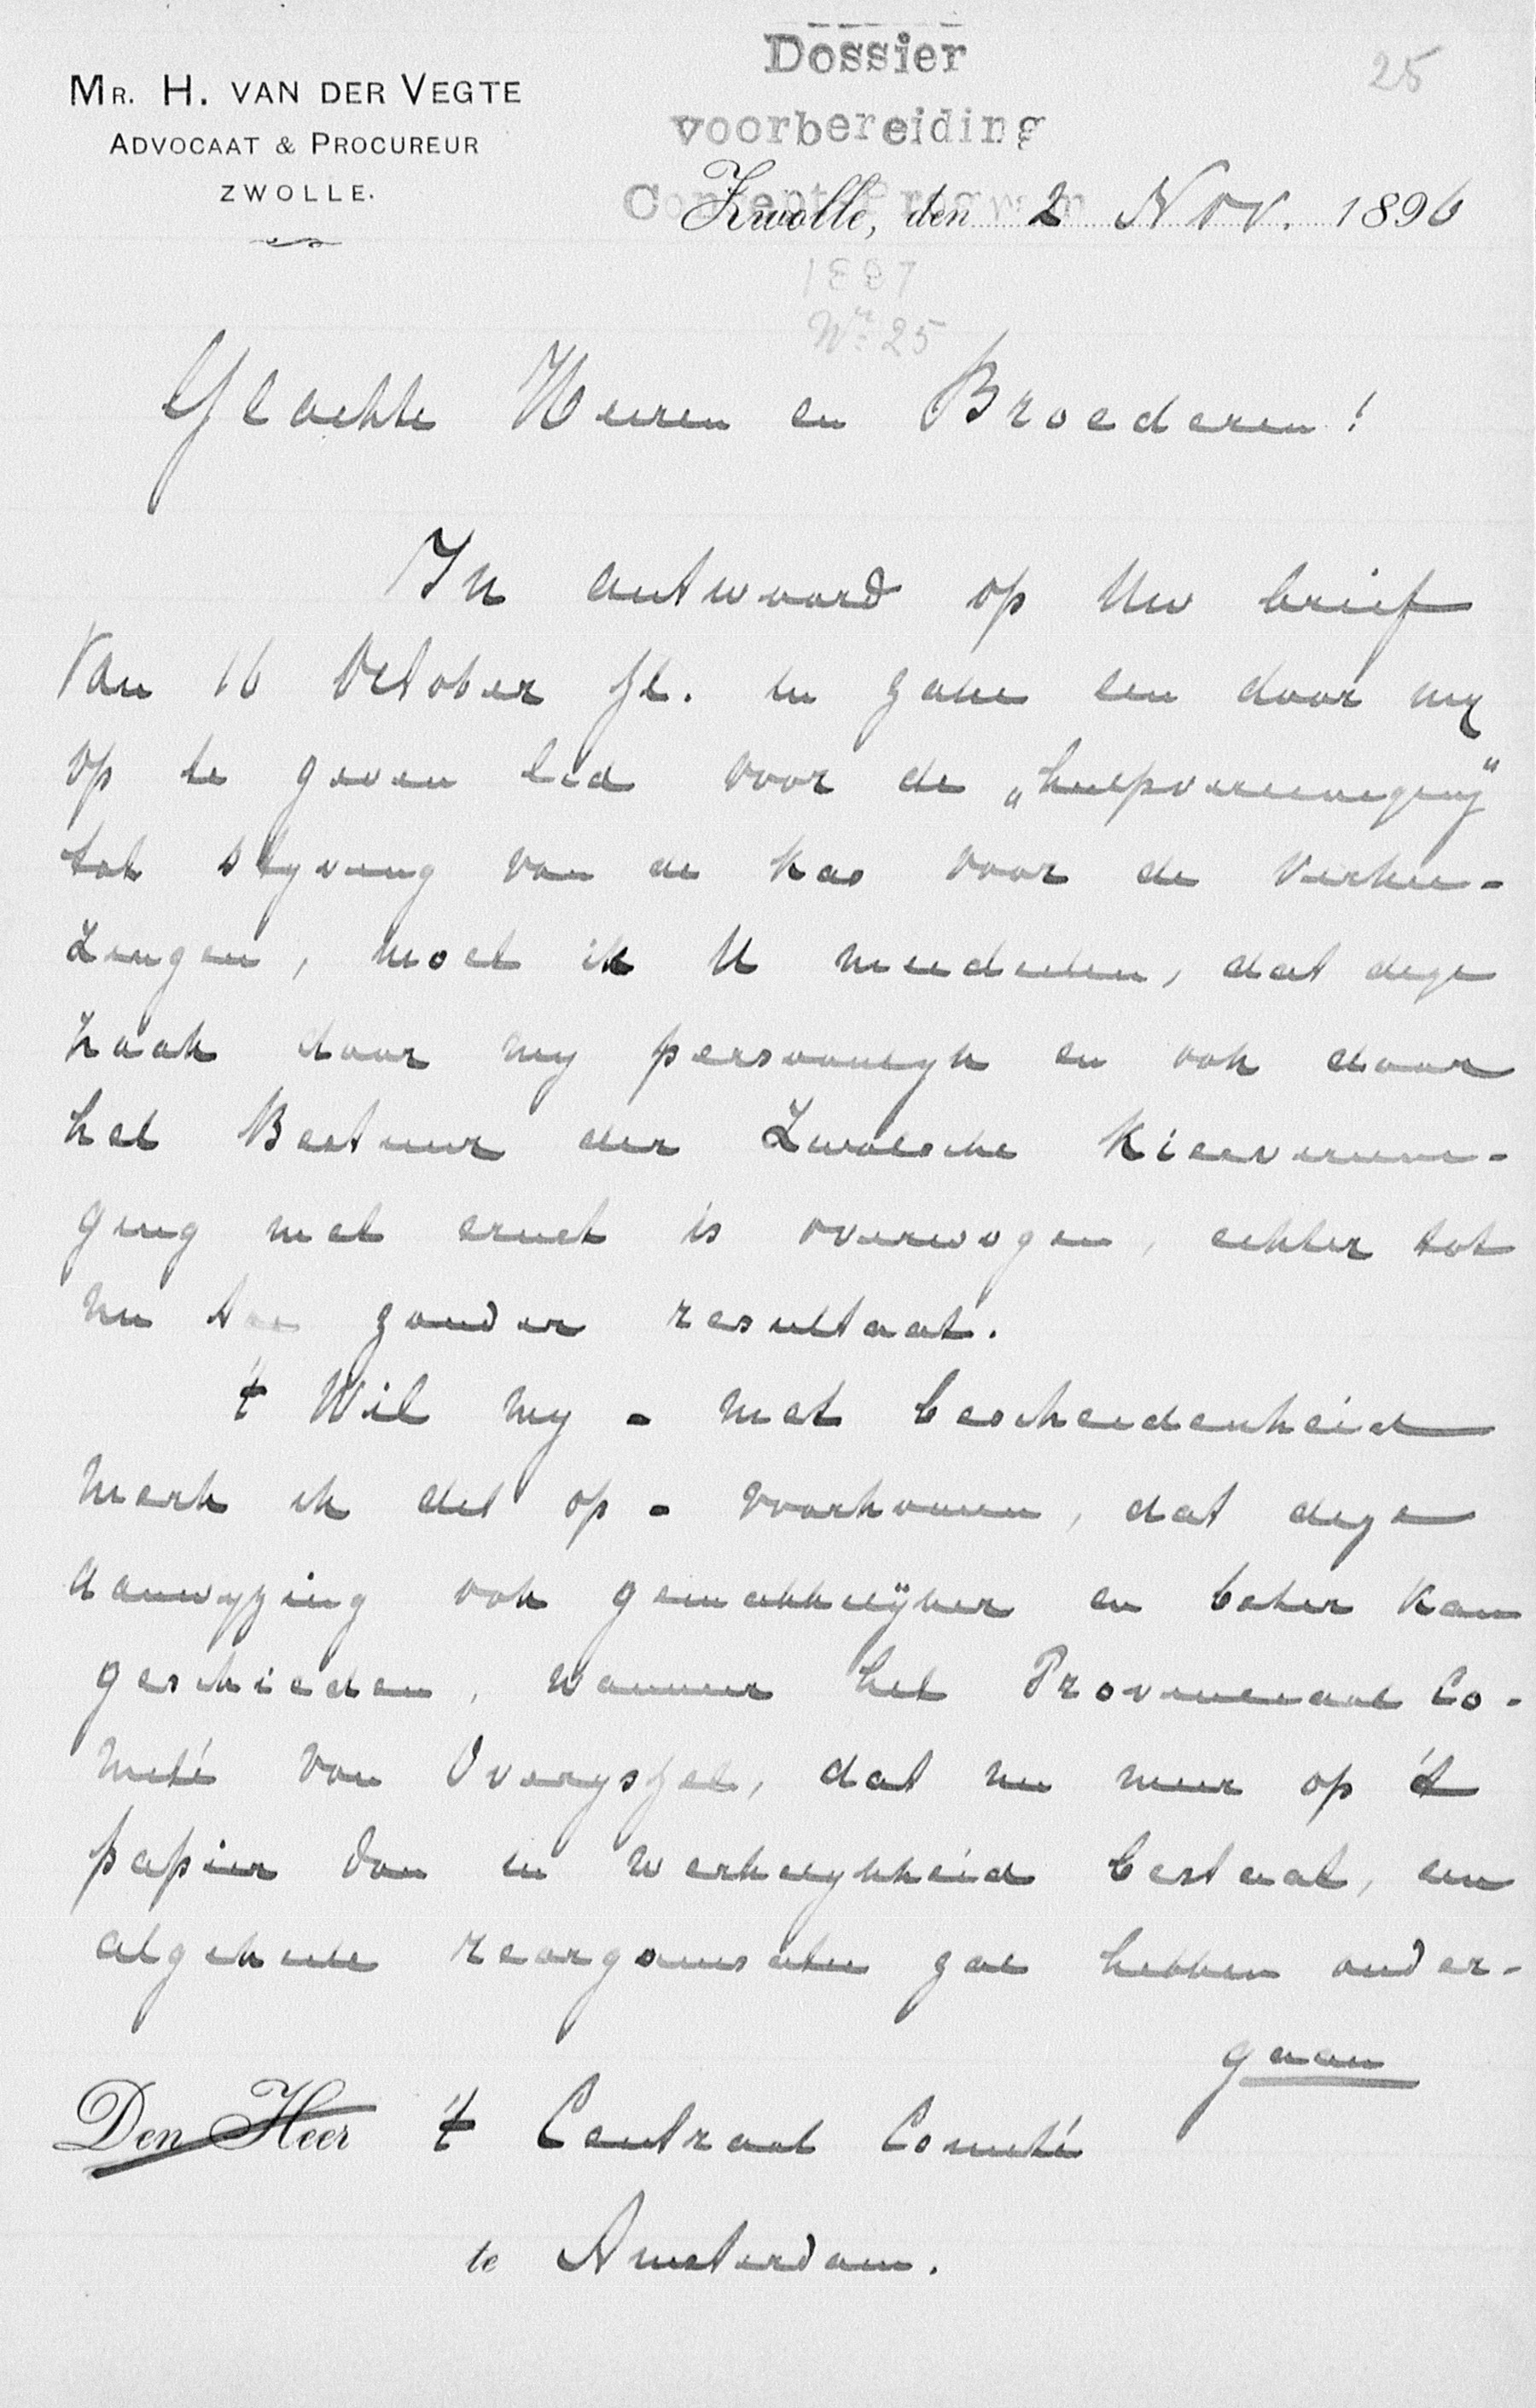 25
Dossier
voorbereiding
Concept-Program
1897
No. 25
MR. H. VAN DER VEGTE
ADVOCAAT & PROCUREUR
ZWOLLE.
Zwolle, den 2 Nov. 1896
Geachte Heeren en Broederen!
In antwoord op Uw brief
van 16 October jl. in zake een door my
op te geven lid voor de „hulpvereeniging"
tot styving van de kas voor de verkie-
zingen, moet ik U meedeelen, dat deze
zaak door my persoonlyk en ook door
het Bestuur der Zwolsche Kiesvereeni-
ging met ernst is overwogen, echter tot
nu toe zonder resultaat.
't Wil my - met bescheidenheid
merk ik dit op - voorkomen, dat deze
aanwyzing ook gemakkelijker en beter kan
geschieden, wanneer het Provinciaal Co-
mité van Overyssel, dat nu meer op 't
papier dan in werkelykheid bestaat, een
algeheele reorganisatie zal hebben onder-
gaan
Den Heer 't Centraal Comité
te Amsterdam.